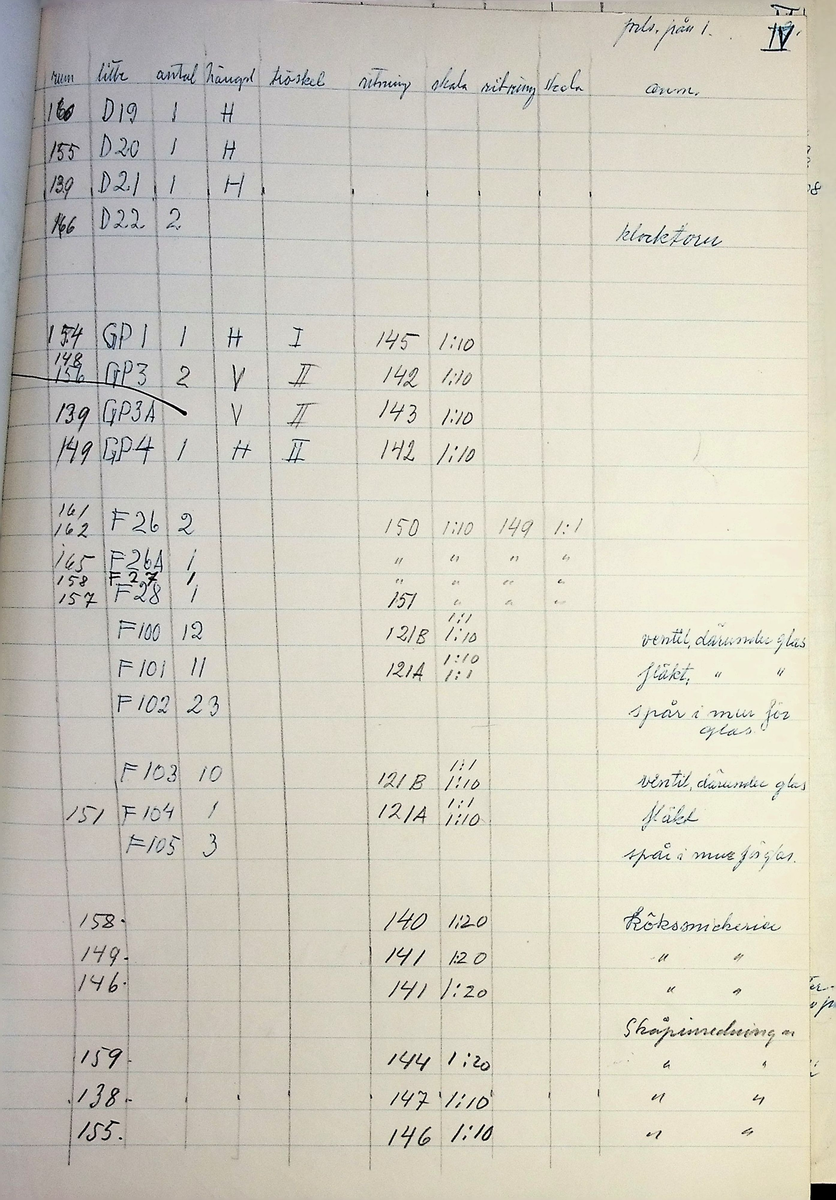 prls. från 1. IV.
rum litt antal hängd tröskel ritning skala ritning skala anm.
160 D19 1 H
155 D20 1 H
139 D21 1 H
166 D22 2
klocktorn
154 GP1 1 H I 145 1:10
148
156 GP3 2 V II 142 1:10
139 GP3A V II 143 1:10
149 GP4 1 H II 142 1:10
161
162 F26 2 150 1:10 149 1:1
165 F26A 1 " " " "
158 F27 1 " " " "
157 F28 1 151 " " "
1:1
F100 12 121B 1:10 ventil, därunder glas
F101 11 121A 1:10 fläkt, " "
1:1
F102 23 spår i mur för
glas
1:1
F103 10 121B 1:10 ventil, därunder glas
151 F104 1 121A 1:1 fläkt
1:10
F105 3 spår i mur för glas.
158. 140 1:20 Kökssnickerier
149. 141 1:20 " "
146. 141 1:20 " "
Skåpinredningar
159. 144 1:20 " "
138. 147 1:10 " "
155. 146 1:10 " "